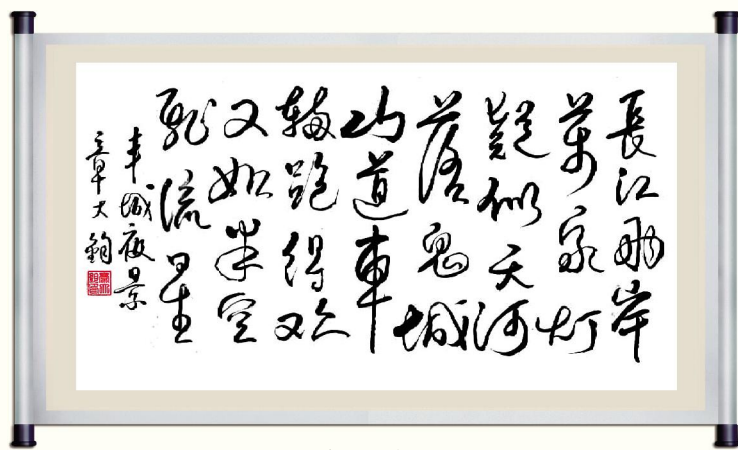 長江两岸
萬家灯
疑似天河
落鬼城
山道車
辆跑得欢
又如半空
飛流星
丰城夜景
章大鈞